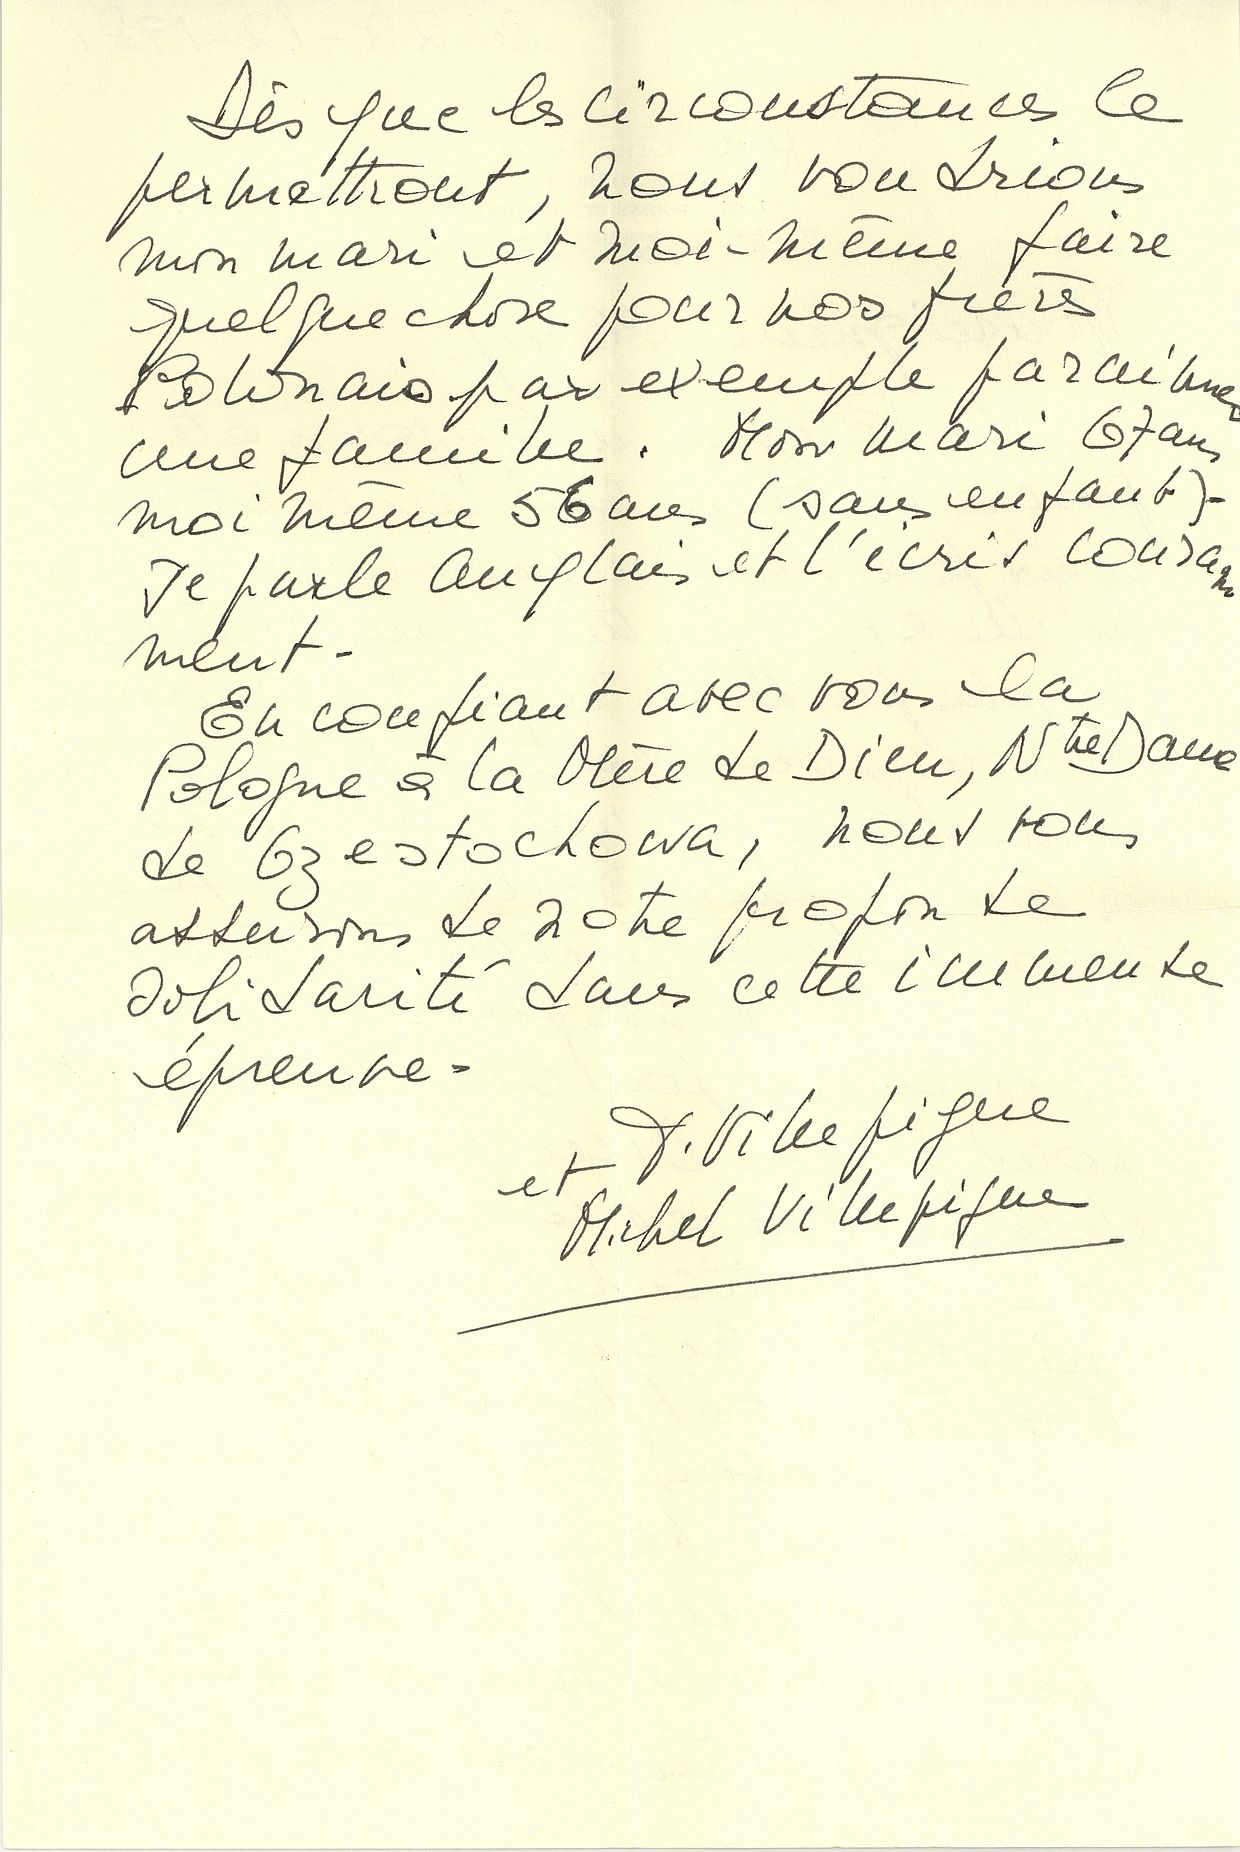 Dès que les circonstances le
permettront, nous voudrions
mon mari et moi-même faire
quelque chose pour nos frères
Polonais par exemple parainner
une famille. Mon mari 67 ans
moi même 56 ans (sans enfant)-
Je parle Anglais et l'écris couram
ment-
En confiant avec vous la
Pologne à la Mère de Dieu, Ntre Dame
de Czestochowa, nous vous
assurons de notre profonde
solidarité dans cette immense
épreuve-
Villepigue
et
Michel Villepigue